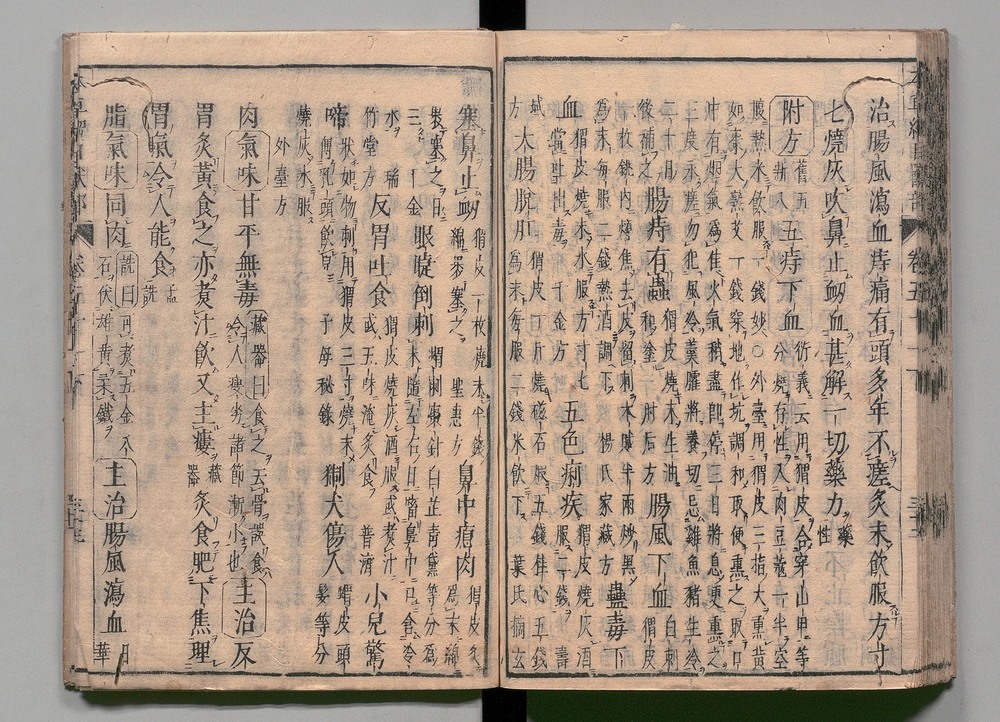 治腸風瀉血痔痛有頭多年不瘥炙末飲服方寸
七燒灰吹鼻止衄血甚解一切藥力藥性
附方舊五新八五痔下血衍義云用猬皮合穿山甲等分燒存性入肉豆蔻一半空
腹熱米飲服一錢妙○外臺用猬皮方三指大熏黃
如棗大熟艾一錢穿地作坑調和取便熏之取口
中有烟氣爲佳火氣稍盡即停三日將息更熏之
三度永瘥勿犯風冷羹臛將養切忌雞魚豬生冷
二十日後補之腸痔有蟲猬皮燒末生油和傅肘后方腸風下血白刺猬皮
一枚銚內煿焦去皮留刺木賊半兩炒黑
爲末每服二錢熱酒調下楊氏家藏方蠱毒下
血猬皮燒末水服方寸七當吐出毒千金方五色痢疾猬皮燒灰酒服二錢壽
域方大腸脫肛猬皮一斤燒磁石煅五錢桂心五錢爲末每服二錢米飲下葉氏摘玄
塞鼻止衄猬皮一枚燒末半錢綿裹塞之聖惠方鼻中瘜肉猬皮炙爲末綿
裹塞之三日千金眼睫倒刺猬刺棗針白芷青黛等分爲末隨左右目㗜鼻中口含冷
水瑞竹堂方反胃吐食猬皮燒灰酒服或煮汁或五味淹炙食普濟小兒驚
啼狀如物刺用猬皮三寸燒末傅乳頭飲兒子母秘錄猘犬傷人猬皮頭髮等分
燒灰水服外臺方
肉氣味甘平無毒藏器曰食之去骨誤食令人瘦劣諸節漸小也主治反
胃炙黃食之亦煮汁飲又主瘻藏器炙食肥下焦理
胃氣令人能食孟詵
脂氣味同肉詵曰可煮五金八石伏雄黃柔鐵主治腸風瀉血日華